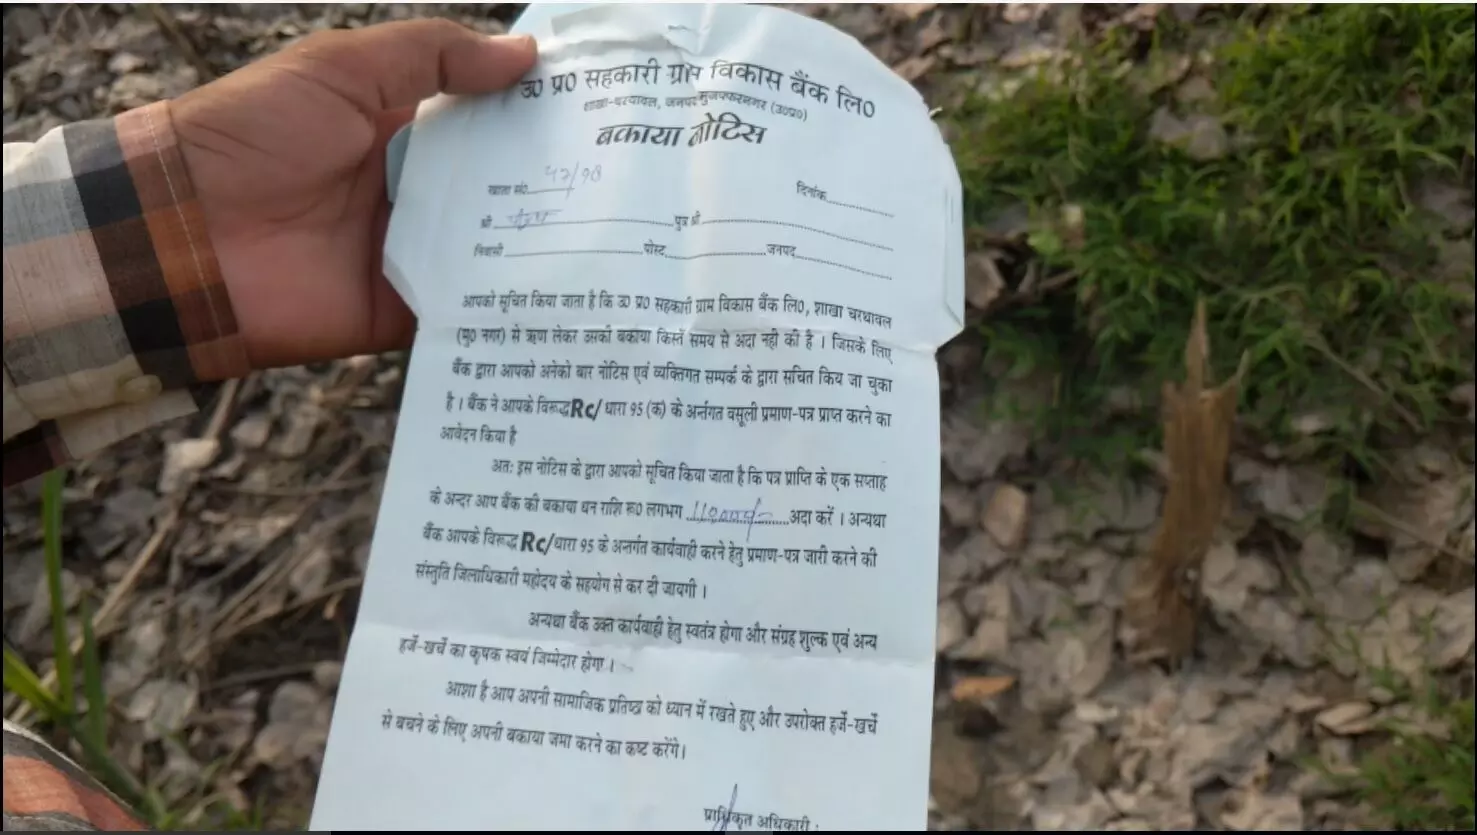 उ0 प्र0 सहकारी ग्राम विकास बैंक लि0
शाखा-चरथावल, जनपद मुजफ्फरनगर (उ0प्र0)
बकाया नोटिस
खाता सं0
दिनांक
श्री पुत्र श्री
निवासी पोस्ट जनपद
आपको सूचित किया जाता है कि उ0 प्र0 सहकारी ग्राम विकास बैंक लि0, शाखा चरथावल
(मु0 नगर) से ऋण लेकर उसकी बकाया किस्तें समय से अदा नही की है । जिसके लिए
बैंक द्वारा आपको अनेको बार नोटिस एवं व्यक्तिगत सम्पर्क के द्वारा सचित किय जा चुका
है । बैंक ने आपके विरूद्ध Rc/ धारा 95 (क) के अर्न्तगत वसूली प्रमाण-पत्र प्राप्त करने का
आवेदन किया है
अतः इस नोटिस के द्वारा आपको सूचित किया जाता है कि पत्र प्राप्ति के एक सप्ताह
के अन्दर आप बैंक की बकाया धन राशि रू0 लगभग अदा करें । अन्यथा
बैंक आपके विरूद्ध Rc/धारा 95 के अन्तर्गत कार्यवाही करने हेतु प्रमाण-पत्र जारी करने की
संस्तुति जिलाधिकारी महोदय के सहयोग से कर दी जायगी ।
अन्यथा बैंक उक्त कार्यवाही हेतु स्वतंत्र होगा और संग्रह शुल्क एवं अन्य
हर्जे-खर्चे का कृषक स्वयं जिम्मेदार होगा ।
आशा है आप अपनी सामाजिक प्रतिष्ठा को ध्यान में रखते हुए और उपरोक्त हर्जे-खर्चे
से बचने के लिए अपनी बकाया जमा करने का कष्ट करेंगे।
प्राधिकृत अधिकारी